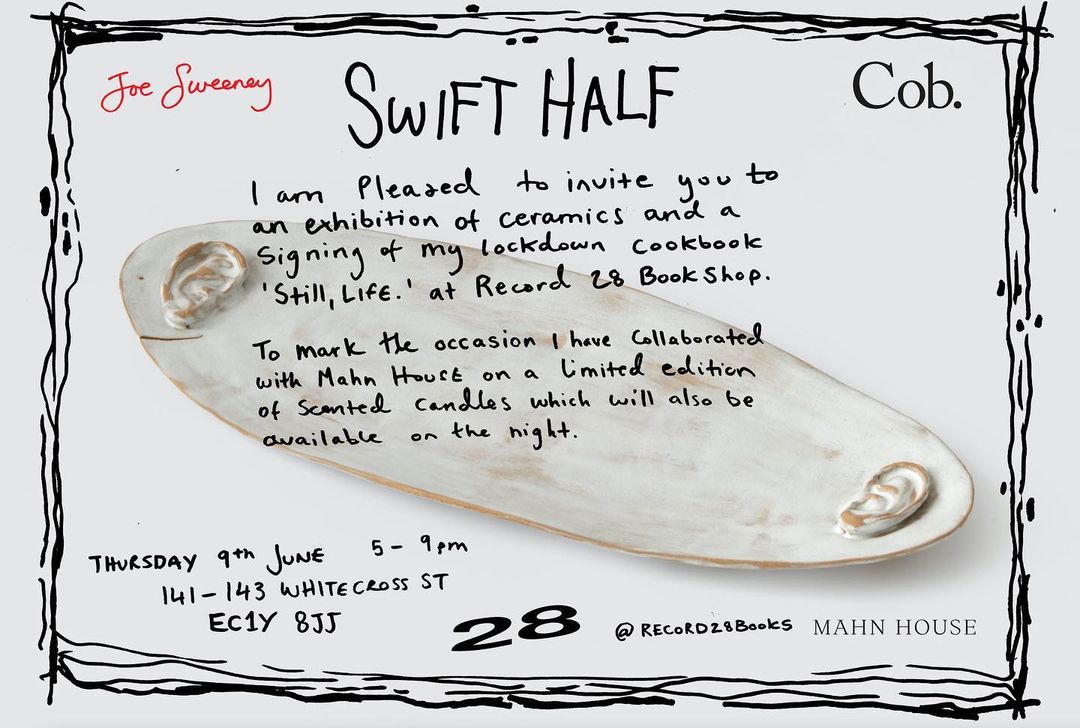 Joe Sweeney
SWIFT HALF
Cob.
I am Pleased to invite you to
an exhibition of ceramics and a
signing of my lockdown cookbook
'Still, LIFE.' at Record 28 Book Shop.
To mark the occasion I have Collaborated
with Mahn House on a limited edition
of Scented Candles which will also be
available on the night.
THURSDAY 9th JUNE 5 - 9pm
141-143 WHITECROSS ST
EC1Y 8JJ
28
@RECORD28BOOKS
MAHN HOUSE